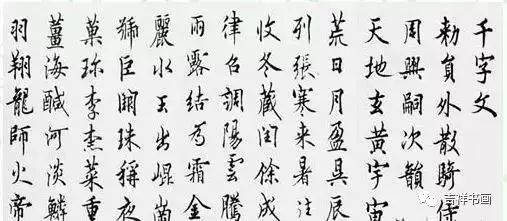 千字文
勅員外散騎侍
周興嗣次韻
天地玄黃宇宙
荒日月盈昃辰
列張寒来暑往
收冬藏閏餘成
律召調陽雲騰
雨露結為霜金
麗水玉出崐崗
號巨闕珠稱夜
菓珍李柰菜重
薑海鹹河淡鱗
羽翔龍師火帝
吉祥书画